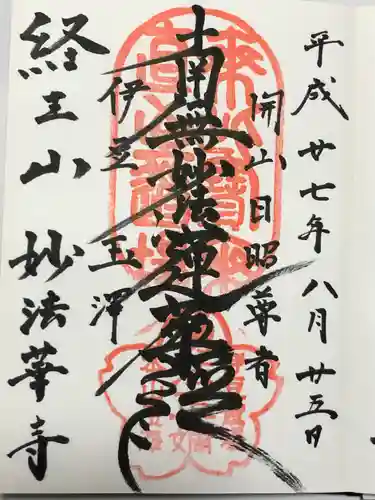 平成廿七年八月廿五日
開山日昭尊者
南無妙法蓮華経
伊豆玉澤
経王山 妙法華寺